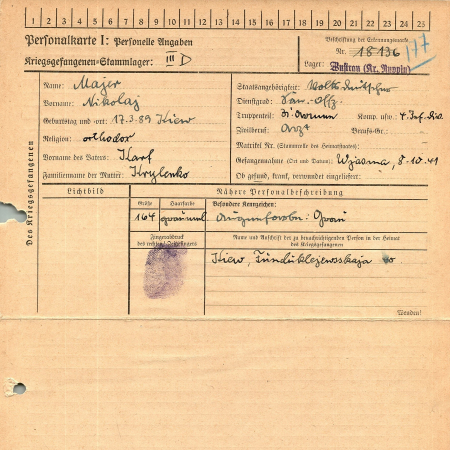 1 2 3 4 5 6 7 8 9 10 11 12 13 14 15 16 17 18 19 20 21 22 23 24 25
Personalkarte I: Personelle Angaben
Kriegsgefangenen-Stammlager: III D
Beschriftung der Erkennungsmarke
Nr. 18136 177
Lager: Wustrau (Kr. Ruppin)
Des Kriegsgefangenen
Name: Majer
Vorname: Nikolaj
Geburtstag und -ort: 17.3.89 Kiew
Religion: orthodox
Vorname des Vaters: Karl
Familienname der Mutter: Krylenko
Staatsangehörigkeit: Volksdeutscher
Dienstgrad: San.-Offz.
Truppenteil: Komp. usw.: 4. Inf. Div.
Zivilberuf: Arzt Berufs-Gr.:
Matrikel Nr. (Stammrolle des Heimatstaates):
Gefangennahme (Ort und Datum): Wjasma, 8.10.41
Ob gesund, krank, verwundet eingeliefert:
Lichtbild
Nähere Personalbeschreibung
Größe Haarfarbe Besondere Kennzeichen:
164 Augenfarbe: Grau
Fingerabdruck
des rechten! Zeigefingers
Name und Anschrift der zu benachrichtigenden Person in der Heimat
des Kriegsgefangenen
Kiew, Funduklejewskaja
Wenden!